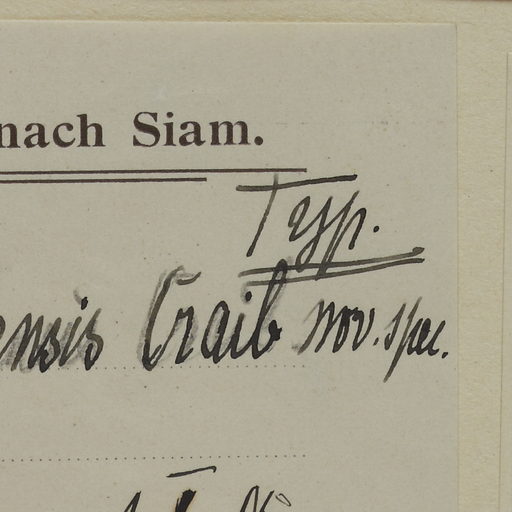 nach Siam.
Typ.
ensis Craib nov. spec.